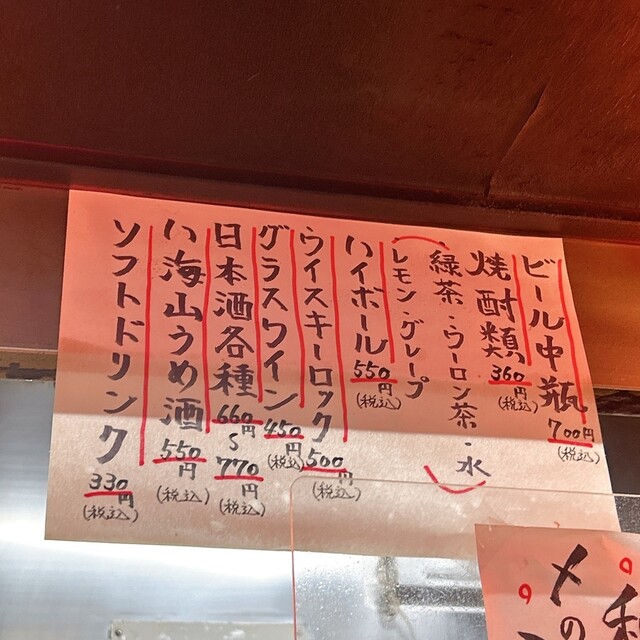 ビール中瓶 700円(税込)
焼酎類 360円(税込)
(緑茶・ウーロン茶・水
レモン・グレープ)
ハイボール 550円(税込)
ウイスキーロック 500円(税込)
グラスワイン 450円(税込)
日本酒各種 660円〜770円(税込)
八海山うめ酒 550円(税込)
ソフトドリンク 330円(税込)
〆の